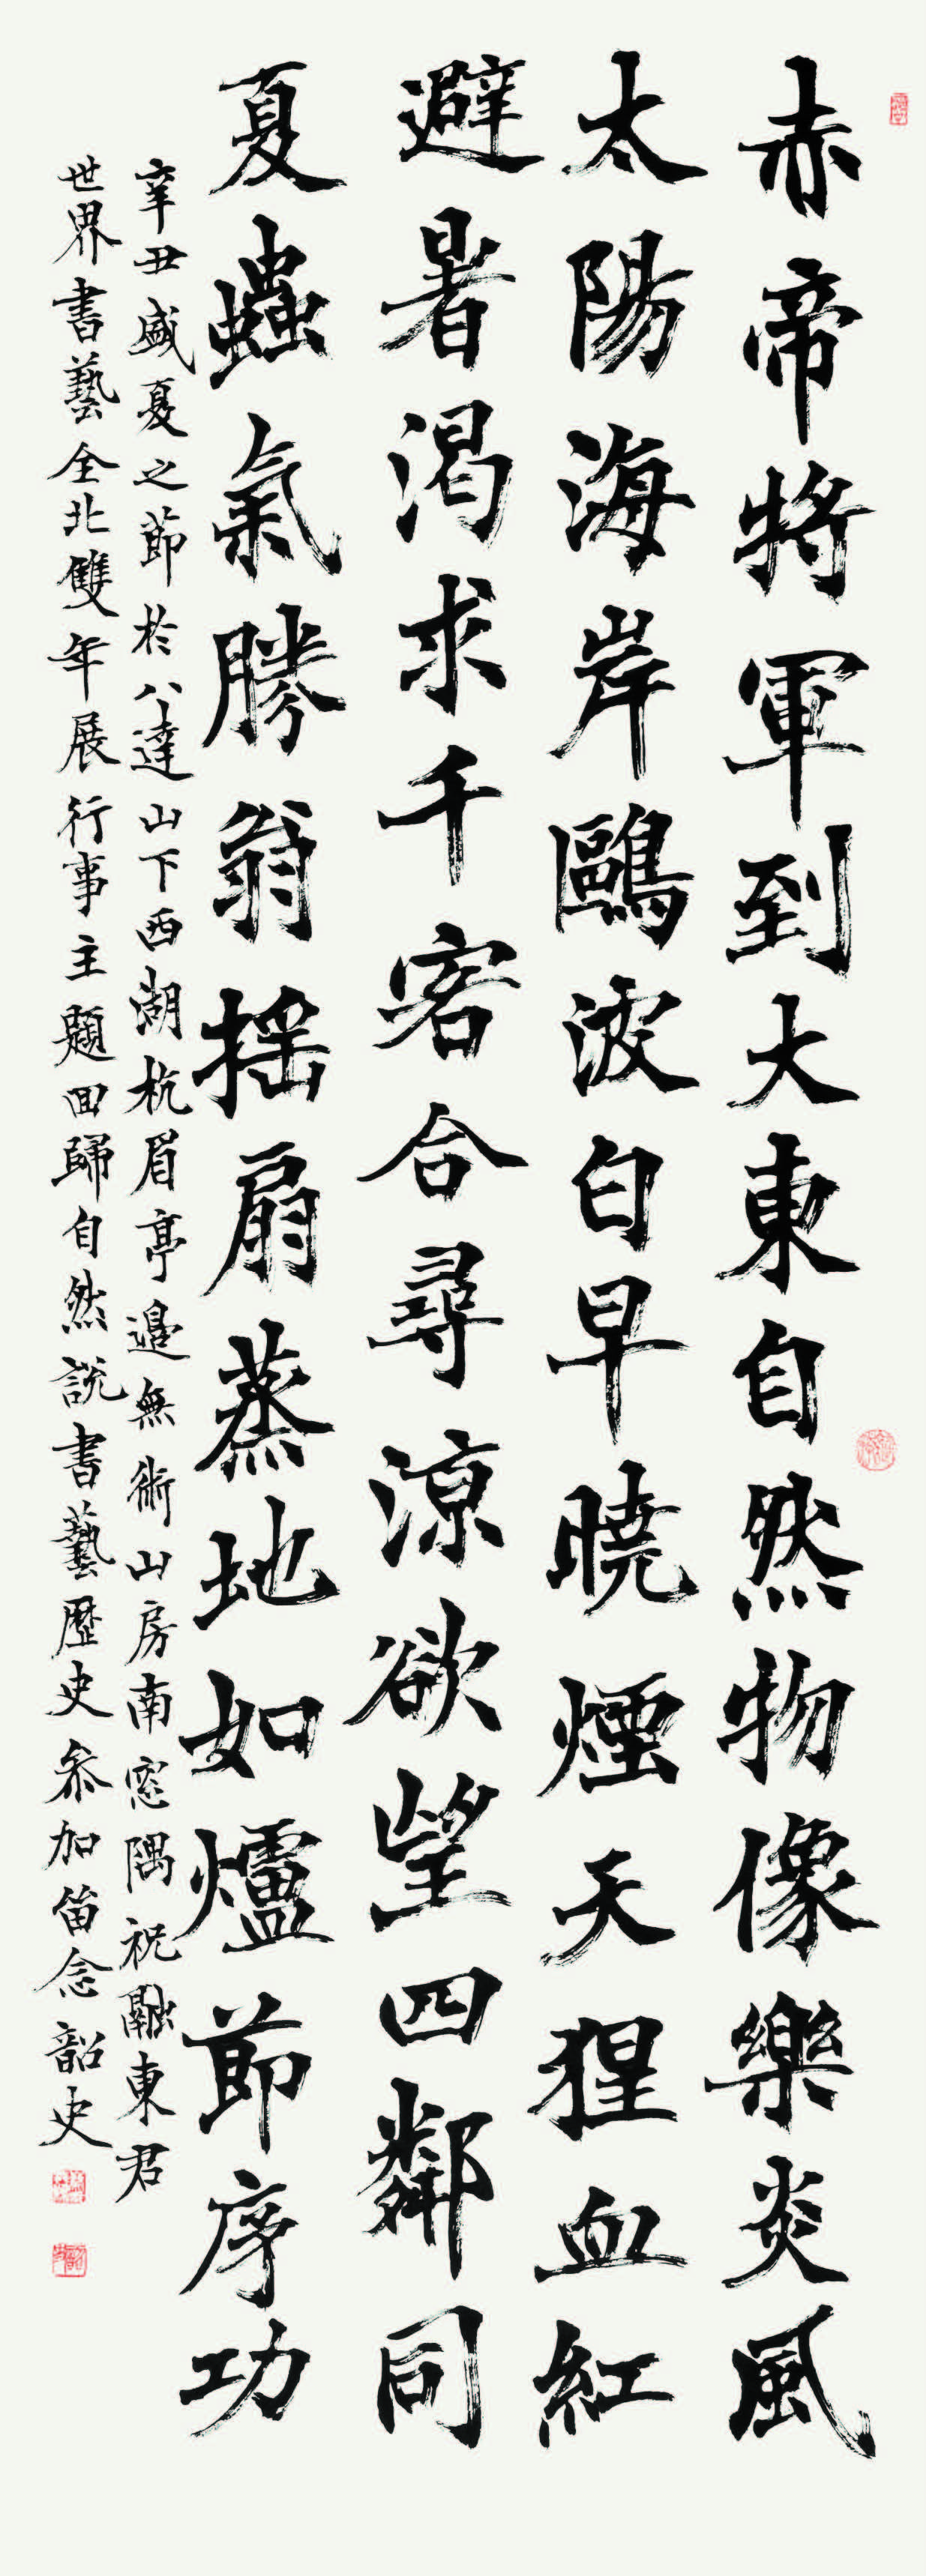 赤帝將軍到大東自然物像樂炎風
太陽海岸鷗波白早曉煙天猩血紅
避暑渴求千客合尋涼欲望四鄰同
夏蟲氣勝翁搖扇蒸地如爐節序功
辛丑盛夏之節於八達山下西湖杭眉亭邊無術山房南窓隅祝融東君
世界書藝全北雙年展行事主題回歸自然說書藝歷史參加留念韶史